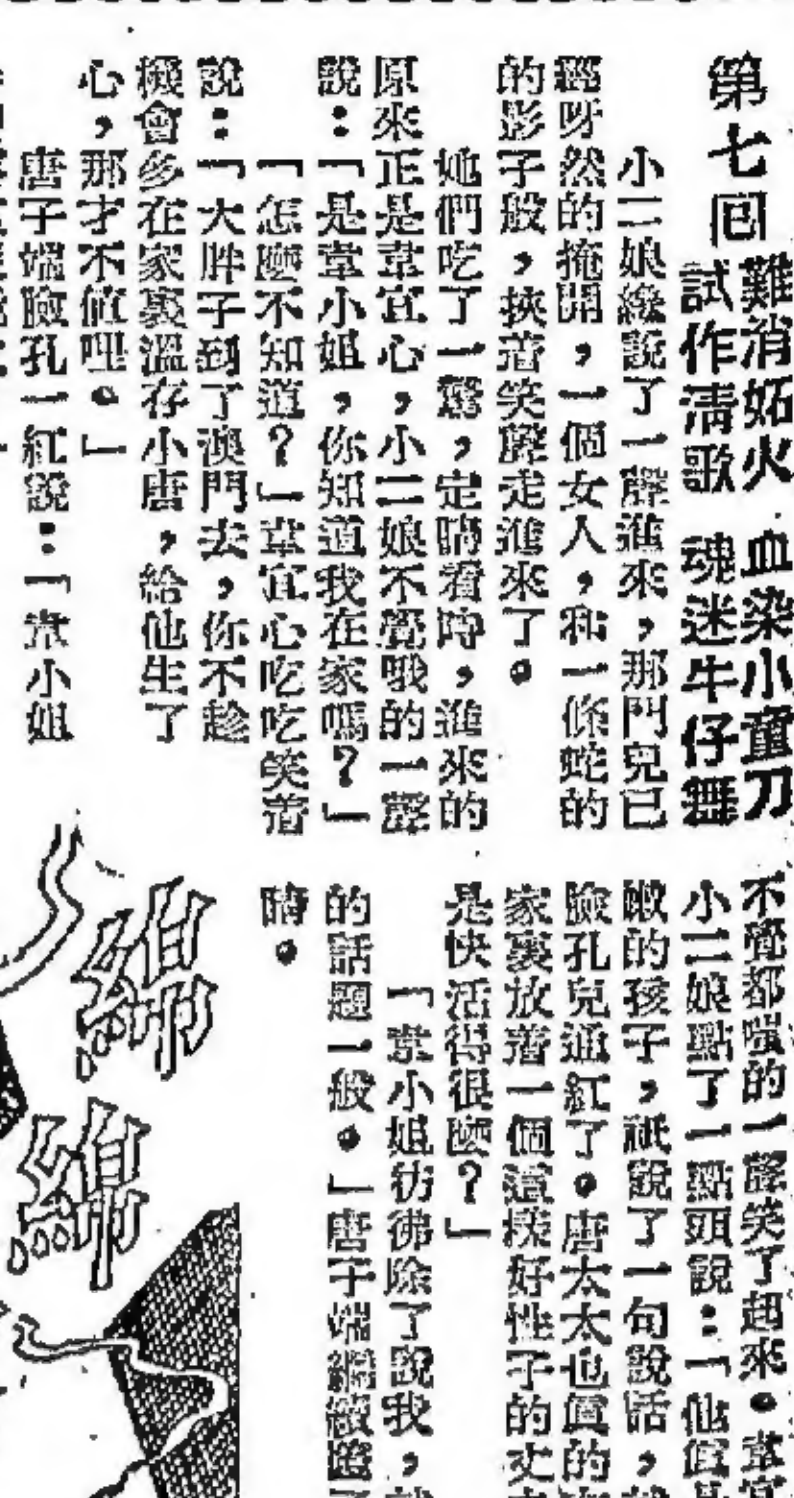 第七回
難消妬火 血染小童刀
試作清歌 魂迷牛仔舞
小二娘纔說了一聲進來，那門兒已
經呀然的掩開，一個女人，和一條蛇的
的影子般，挾着笑聲走進來了。
她們吃了一驚，定睛看時，進來的
原來正是韋宜心，小二娘不覺哦的一聲
說：「是韋小姐，你知道我在家嗎？」
「怎麼不知道？」韋宜心吃吃笑着
說：「大胖子到了澳門去，你不趁
機會多在家裏溫存小唐，給他生了
心，那才不值哩。」
唐子端臉孔一紅說：「韋小姐
不覺都嗤的一聲笑了起來。韋宜
小二娘點了一點頭說：「他
嫩的孩子，祇說了一句說話，
臉孔兒通紅了。唐太太也真的
家裏放着一個這樣好性子的丈
是快活得很麼？」
「韋小姐彷彿除了說我，
的話題一般。」唐子端繼續
睛。
綿
綿